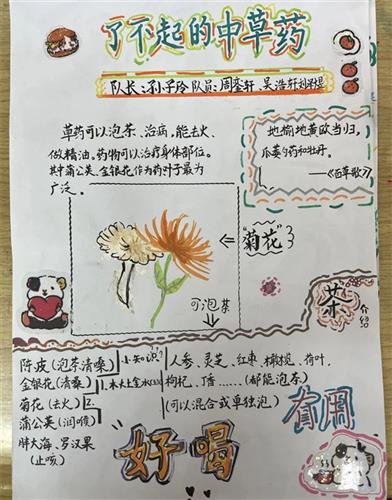 了不起的中草药
队长:孙子玲 队员:周睿轩 吴浩轩
草药可以泡茶、治病,能去火、
做精油。药物可以治疗身体部位。
其中蒲公英、金银花作为药叶子最为
广泛。
地榆地黄欧当归,
瓜蒌勺药和牡丹。
——《百草歌》
⇐ "菊花"
可泡茶
茶介绍
陈皮(泡茶清嗓)
金银花(清嗓)
菊花(去火)
蒲公英(润喉)
胖大海、罗汉果
(止咳)
小知识?
1.
2.
人参、灵芝、红枣、橄榄、荷叶、
枸杞、丁香……(都能泡茶)
(可以混合或单独泡)
有用
好喝